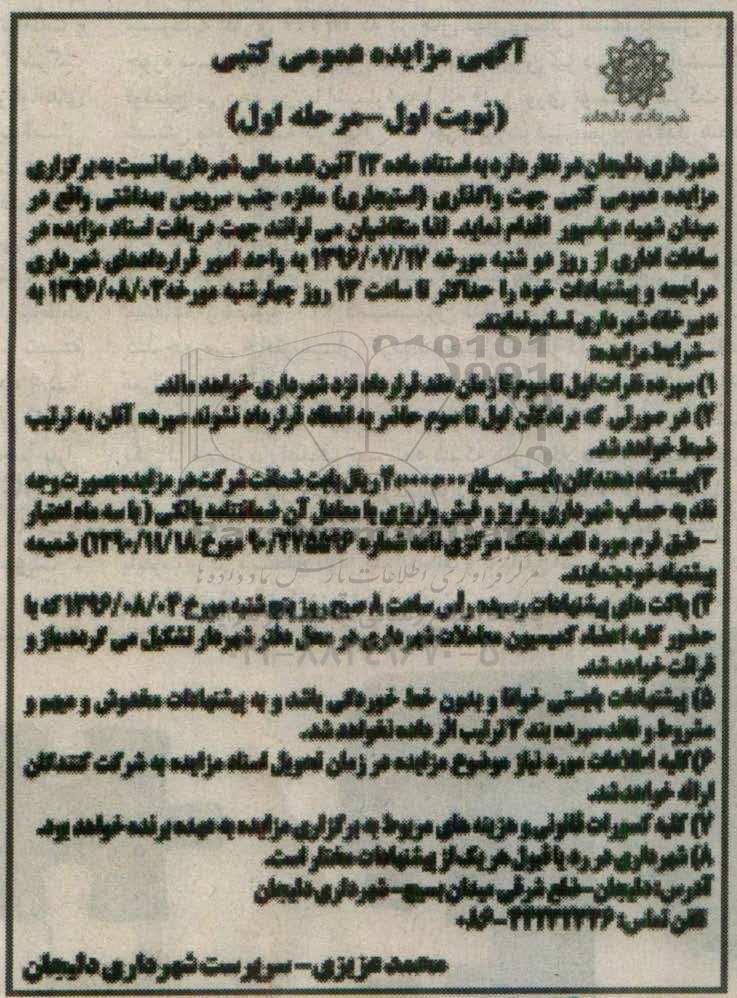 آگهی مزایده عمومی کتبی
(نوبت اول-مرحله اول)
شهرداری دلیجان
شهرداری دلیجان در نظر دارد به استناد ماده ۱۳ آئین نامه مالی شهرداریها نسبت به برگزاری
مزایده عمومی کتبی جهت واگذاری (استیجاری) مغازه جنب سرویس بهداشتی واقع در
میدان شهید عباسپور اقدام نماید. لذا متقاضیان می توانند جهت دریافت اسناد مزایده در
ساعات اداری از روز دو شنبه مورخه ۱۳۹۶/۰۷/۱۷ به واحد امور قراردادهای شهرداری
مراجعه و پیشنهادات خود را حداکثر تا ساعت ۱۳ روز چهارشنبه مورخه ۱۳۹۶/۰۸/۰۳ به
دبیرخانه شهرداری تسلیم نمایند.
-شرایط مزایده:
۱) سپرده نفرات اول تا سوم تا زمان عقد قرارداد نزد شهرداری خواهد ماند.
۲) در صورتی که برندگان اول تا سوم حاضر به انعقاد قرارداد نشوند سپرده آنان به ترتیب
ضبط خواهد شد.
۳) پیشنهاد دهندگان بایستی مبلغ ریال بابت ضمانت شرکت در مزایده بصورت وجه
نقد به حساب شهرداری واریز و فیش واریزی یا معادل آن ضمانتنامه بانکی (با سه ماه اعتبار
-طبق فرم مورد تایید بانک مرکزی نامه شماره مورخ) ضمیمه
پیشنهاد خود نمایند.
۴) پاکت های پیشنهادات رسیده رأس ساعت ۸ صبح روز پنج شنبه مورخ ۱۳۹۶/۰۸/۰۴ که با
حضور کلیه اعضاء کمیسیون معاملات شهرداری در محل دفتر شهردار تشکیل می گردد باز و
قرائت خواهد شد.
۵) پیشنهادات بایستی خوانا و بدون خط خوردگی باشد و به پیشنهادات مخدوش و مبهم و
مشروط و فاقد سپرده بند ۳ ترتیب اثر داده نخواهد شد.
۶) کلیه اطلاعات مورد نیاز موضوع مزایده در زمان تحویل اسناد مزایده به شرکت کنندگان
ارائه خواهد شد.
۷) کلیه کسورات قانونی و هزینه های مربوط به برگزاری مزایده به عهده برنده خواهد بود.
۸) شهرداری در رد یا قبول هر یک از پیشنهادات مختار است.
آدرس: دلیجان-ضلع شرقی میدان بسیج-شهرداری دلیجان
تلفن تماس:
محمد عزیزی-سرپرست شهرداری دلیجان